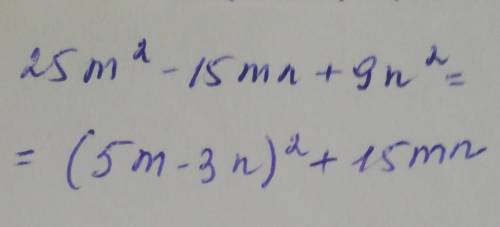 25m² - 15mn + 9n² =
= (5m - 3n)² + 15mn